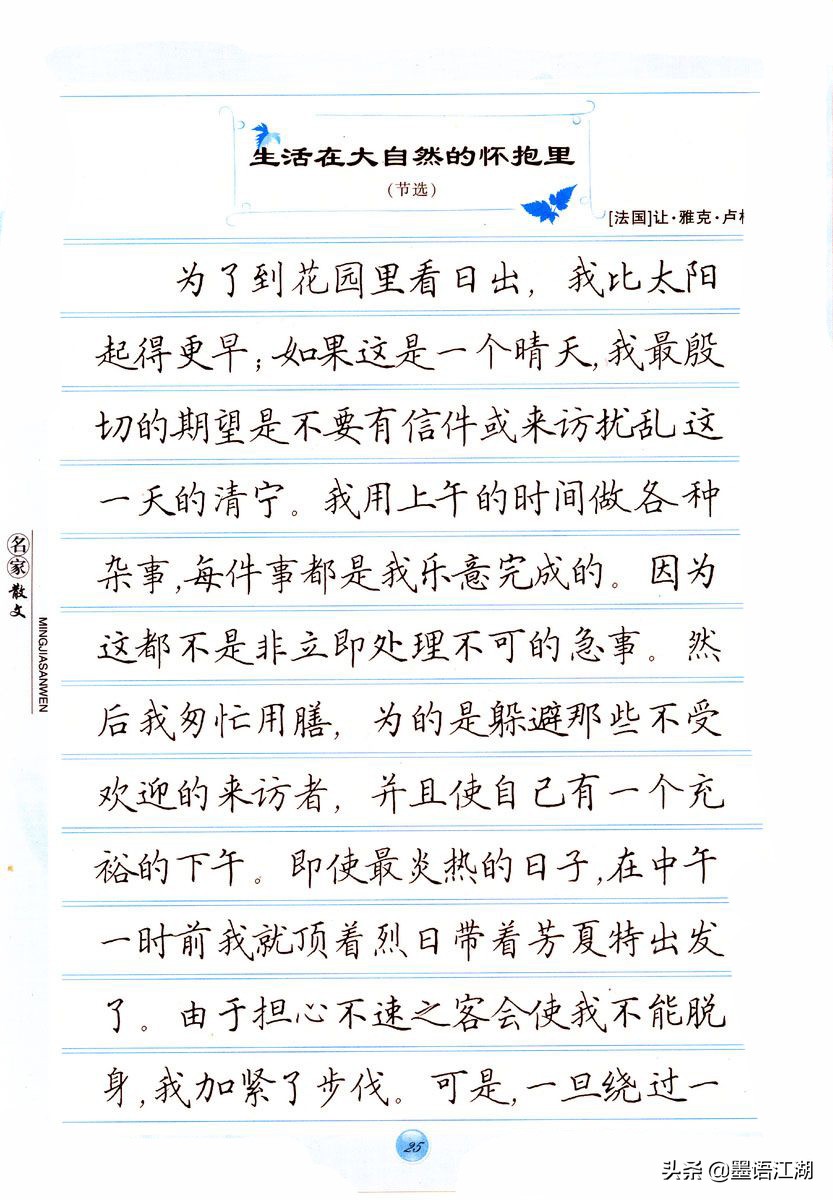 生活在大自然的怀抱里
(节选)
[法国]让·雅克·卢
为了到花园里看日出，我比太阳
起得更早；如果这是一个晴天，我最殷
切的期望是不要有信件或来访扰乱这
一天的清宁。我用上午的时间做各种
杂事，每件事都是我乐意完成的。因为
这都不是非立即处理不可的急事。然
后我匆忙用膳，为的是躲避那些不受
欢迎的来访者，并且使自己有一个充
裕的下午。即使最炎热的日子，在中午
一时前我就顶着烈日带着芳夏特出发
了。由于担心不速之客会使我不能脱
身，我加紧了步伐。可是，一旦绕过一
名家散文
MINGJIASANWEN
25
头条 @墨语江湖